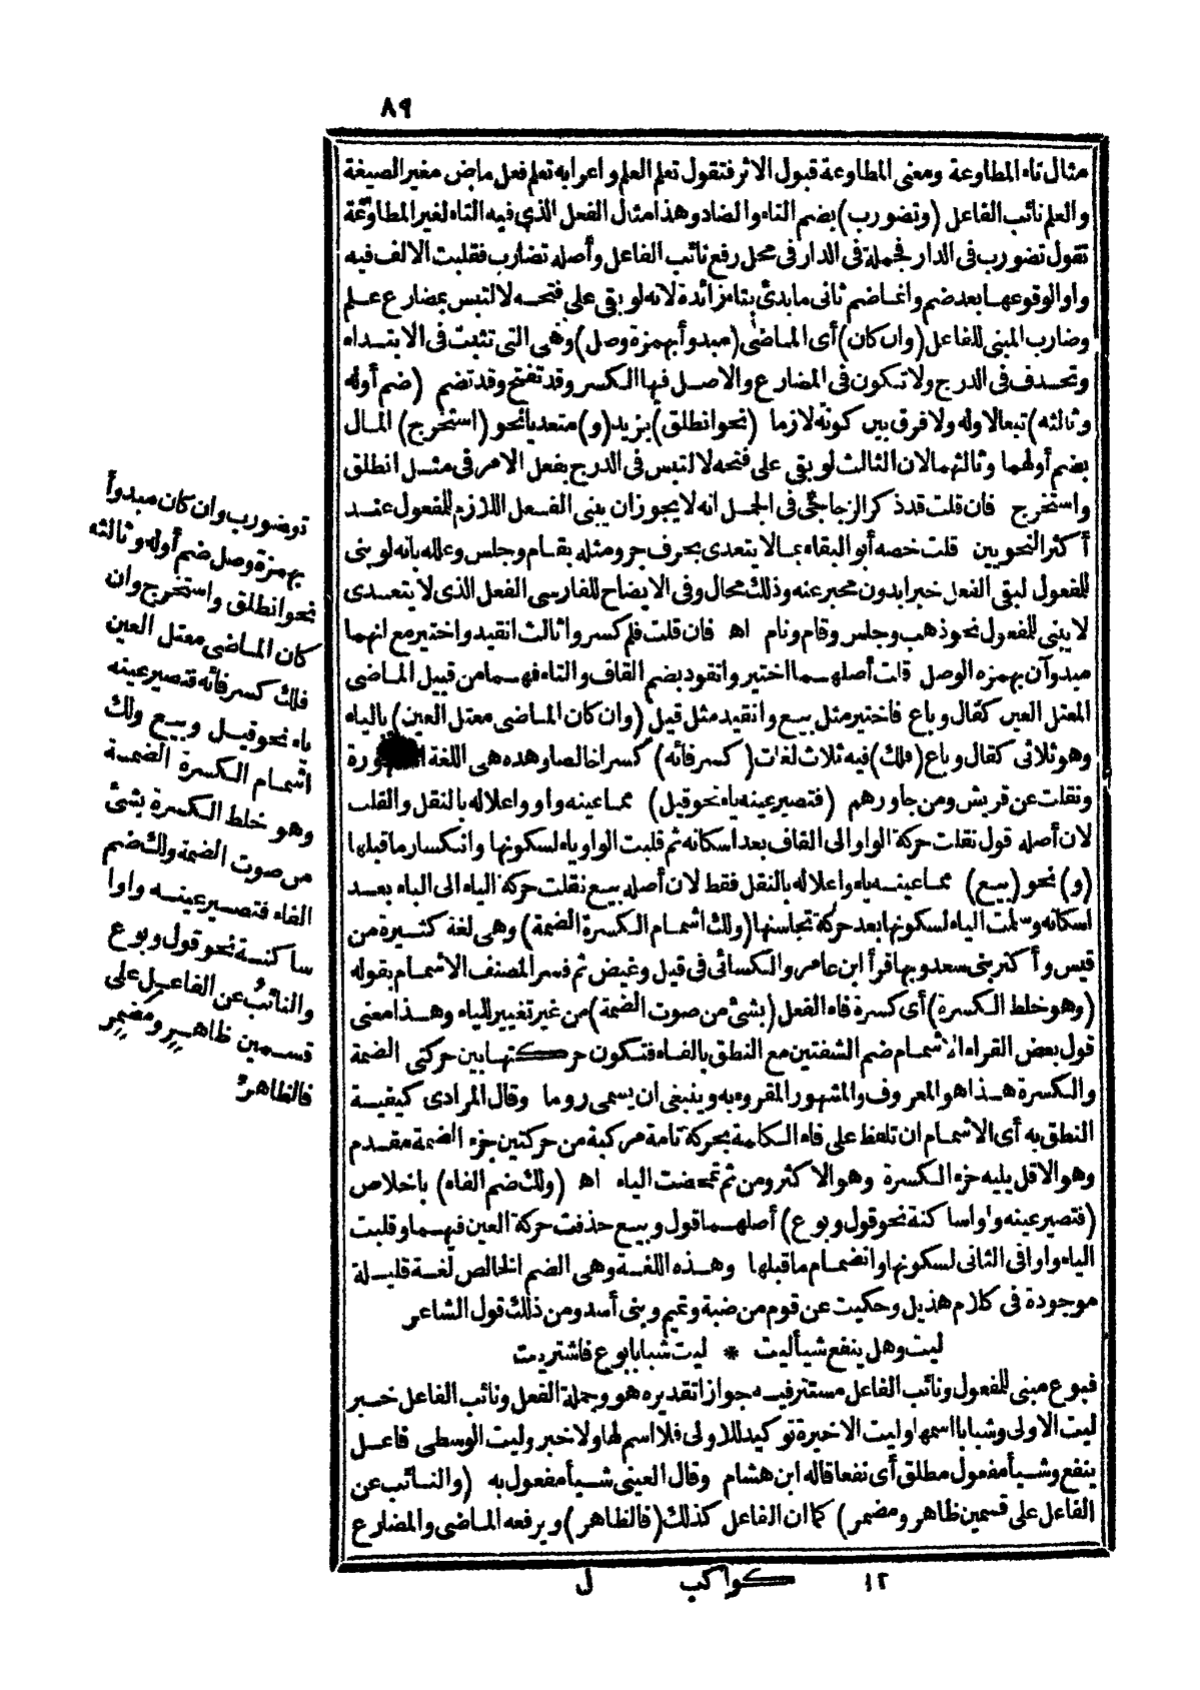 ٨٩
مثال تاء المطاوعة ومعنى المطاوعة قبول الاثر فتقول تعلم العلم واعرابه تعلم فعل ماض مغير الصيغة
والعلم نائب الفاعل (وتضورب) بضم التاء والضاد وهذا مثال الفعل الذى فيه التاء لغير المطاوعة
تقول تضورب فى الدار فجملة فى الدار فى محل رفع نائب الفاعل وأصله تضارب فقلبت الالف فيه
واوا لوقوعها بعد ضم وانما ضم ثانى ما بدئ بتاء زائدة لانه لو بقى على فتحه لالتبس بمضارع علم
وضارب المبنى للفاعل (وان كان) أى الماضى (مبدوأ بهمزة وصل) وهى التى تثبت فى الابتداء
وتحذف فى الدرج ولا تكون فى المضارع والاصل فيها الكسر وقد تفتح وقد تضم (ضم أوله
وثالثه) تبعا لاوله ولا فرق بين كونه لازما (نحو انطلق) بزيد (و) متعديا نحو (استخرج) المال
بضم أولهما وثالثهما لان الثالث لو بقى على فتحه لالتبس فى الدرج بفعل الامر فى مثل انطلق
واستخرج فان قلت قد ذكر الزجاجى فى الجمل انه لا يجوز ان يبنى الفعل اللازم للمفعول عند
أكثر النحويين قلت خصه أبو البقاء بما لا يتعدى بحرف جر ومثله بقام وجلس وعلله بانه لو بنى
للمفعول لبقى الفعل خبرا بدون مخبر عنه وذلك محال وفى الايضاح للفارسى الفعل الذى لا يتعدى
لا يبنى للمفعول نحو ذهب وجلس وقام ونام اه فان قلت فلم كسروا ثالث انقيد واختير مع انهما
مبدوآن بهمزة الوصل قلت أصلهما اختير وانقود بضم القاف والتاء فهما من قبيل الماضى
المعتل العين كقال وباع فاختير مثل بيع وانقيد مثل قيل (وان كان الماضى معتل العين) بالياء
وهو ثلاثى كقال وباع (فلك) فيه ثلاث لغات (كسر فائه) كسرا خالصا وهذه هى اللغة
ونقلت عن قريش ومن جاورهم (فتصير عينه ياء نحو قيل) مما عينه واو واعلاله بالنقل والقلب
لان أصله قول نقلت حركة الواو الى القاف بعد اسكانه ثم قلبت الواو ياء لسكونها وانكسار ما قبلها
(و) نحو (بيع) مما عينه ياء واعلاله بالنقل فقط لان أصله بيع نقلت حركة الياء الى الباء بعد
اسكانه وسلمت الياء لسكونها بعد حركة تجانسها (ولك اشمام الكسرة الضمة) وهى لغة كثيرة من
قيس وأكثر بنى سعد وبها قرأ ابن عامر والكسائى فى قيل وغيض ثم فسر المصنف الاشمام بقوله
(وهو خلط الكسرة) أى كسرة فاء الفعل (بشئ من صوت الضمة) من غير تغيير للياء وهذا معنى
قول بعض القراء الاشمام ضم الشفتين مع النطق بالفاء فتكون حركتها بين حركتى الضمة
والكسرة هذا هو المعروف والمشهور المقروء به وينبغى ان يسمى روما وقال المرادى كيفية
النطق به أى الاشمام ان تلفظ على فاء الكلمة بحركة تامة مركبة من حركتين جزء الضمة مقدم
وهو الاقل يليه جزء الكسرة وهو الاكثر ومن ثم تمحضت الياء اه (ولك ضم الفاء) باخلاص
(فتصير عينه واوا ساكنة نحو قول وبوع) أصلهما قول وبيع حذفت حركة العين فيهما وقلبت
الياء واوا فى الثانى لسكونها وانضمام ما قبلها وهذه اللغة وهى الضم الخالص لغة قليلة
موجودة فى كلام هذيل وحكيت عن قوم من ضبة وتميم وبنى أسد ومن ذلك قول الشاعر
ليت وهل ينفع شيأ ليت * ليت شبابا بوع فاشتريت
فبوع مبنى للمفعول ونائب الفاعل مستتر فيه جوازا تقديره هو وجملة الفعل ونائب الفاعل خبر
ليت الاولى وشبابا اسمها وليت الاخيرة توكيد للاولى فلا اسم لها ولا خبر وليت الوسطى فاعل
ينفع وشيأ مفعول مطلق أى نفعا قاله ابن هشام وقال العينى شيأ مفعول به (والنائب عن
الفاعل على قسمين ظاهر ومضمر) كما ان الفاعل كذلك (فالظاهر) ويرفعه الماضى والمضارع
١٢ كواكب ل
تو ضورب وان كان مبدوأ
بهمزة وصل ضم أوله وثالثه
نحو انطلق واستخرج وان
كان الماضى معتل العين
فلك كسر فائه فتصير عينه
ياء نحو قيل وبيع ولك
اشمام الكسرة الضمة
وهو خلط الكسرة بشئ
من صوت الضمة ولك ضم
الفاء فتصير عينه واوا
ساكنة نحو قول وبوع
والنائب عن الفاعل على
قسمين ظاهر ومضمر
فالظاهر